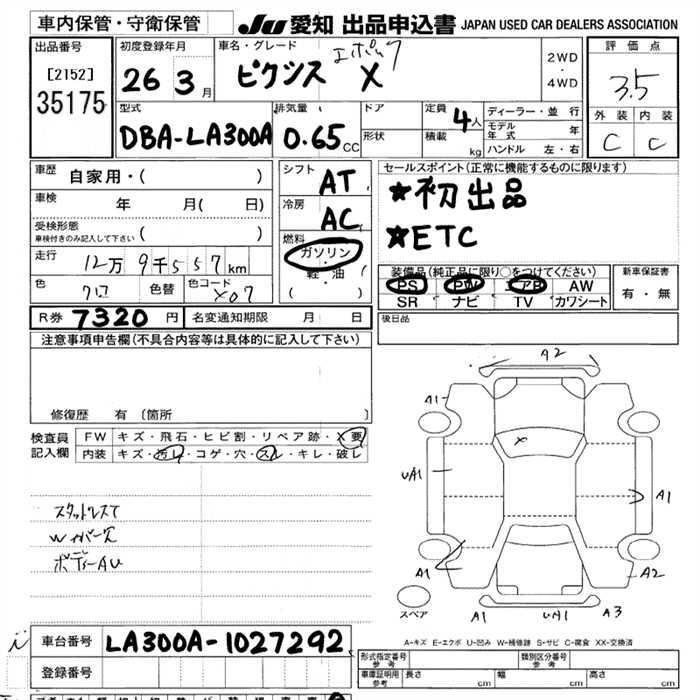 車内保管・守衛保管
JU 愛知 出品申込書 JAPAN USED CAR DEALERS ASSOCIATION
出品番号
[2152]
35175
初度登録年月
26 3月
車名・グレード
エポック
ピクシス X
2WD
・
4WD
評価点
3.5
外装 内装
C C
型式
DBA-LA300A
排気量
0.65CC
ドア
形状
定員 4人
積載 kg
ディーラー・並行
モデル年式 年
ハンドル 左・右
車歴 自家用・( )
車検 年 月(日)
受検形態
車検付きのみ記入して下さい ( )
走行 12万9千557km
色 クロ 色替 色コード X07
シフト AT
冷房 AC
燃料
ガソリン
・
軽・油
( )
セールスポイント(正常に機能するものに限ります)
★初出品
★ETC
装備品(純正品に限り○をつけてください)
PS PW エアB AW
SR ナビ TV カワシート
新車保証書
有・無
R券 7320円 名変通知期限 月 日
後日品
注意事項申告欄(不具合内容等は具体的に記入して下さい)
修復歴 有〔箇所 〕
検査員記入欄
FW キズ・飛石・ヒビ割・リペア跡・X要
内装 キズ・汚レ・コゲ・穴・スレ・キレ・破レ
スタットレスT
ボディーAU
A2
A1
UA1
A1
A1
A2
スペア
A1 UA1 A3
A-キズ E-エクボ U-凹み W-補修跡 S-サビ C-腐食 XX-交換済
車台番号 LA300A-1027292
登録番号
形式指定番号
参考
類別区分番号
参考
車庫証明用
参考
長さ cm 幅 cm 高さ cm